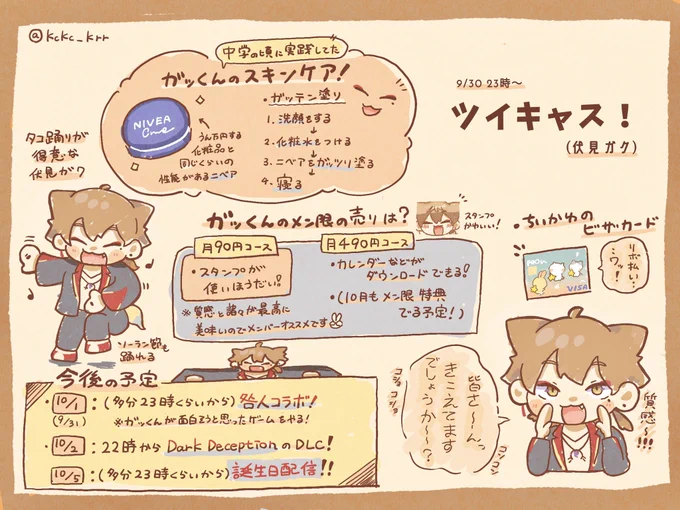 @kckc_krr
中学の頃に実践してた
ガッくんのスキンケア!
NIVEA
Creme
うん万円する
化粧品と
同じくらいの
性能があるニベア
・ガッテン塗り
1. 洗顔をする
↓
2. 化粧水をつける
↓
3. ニベアをガッツリ塗る
↓
4. 寝る
9/30 23時〜
ツイキャス!
(伏見ガク)
タコ踊りが
得意な
伏見ガク
ソーラン節も
踊れる
ガッくんのメン限の売りは?
スタンプ
かわいい!
月90円コース
・スタンプが
使いほうだい!?
※質感と諸々が最高に
美味いのでメンバーオススメです
月490円コース
・カレンダーなどが
ダウンロードできる!
・(10月もメン限特典
でる予定!)
・ちいかわの
ビザカード
VISA
リボ払い…
ワッ!
今後の予定
・10/1:(多分23時くらいから)咎人コラボ!
(9/31)
※ガッくんが面白そうと思ったゲームをやる!
・10/2:22時からDark DeceptionのDLC!
・10/5:(多分23時くらいから)誕生日配信!!
皆さ〜んっ
きこえてます
でしょうか〜!?
コショコショ
コソコソ
質感〜!!!